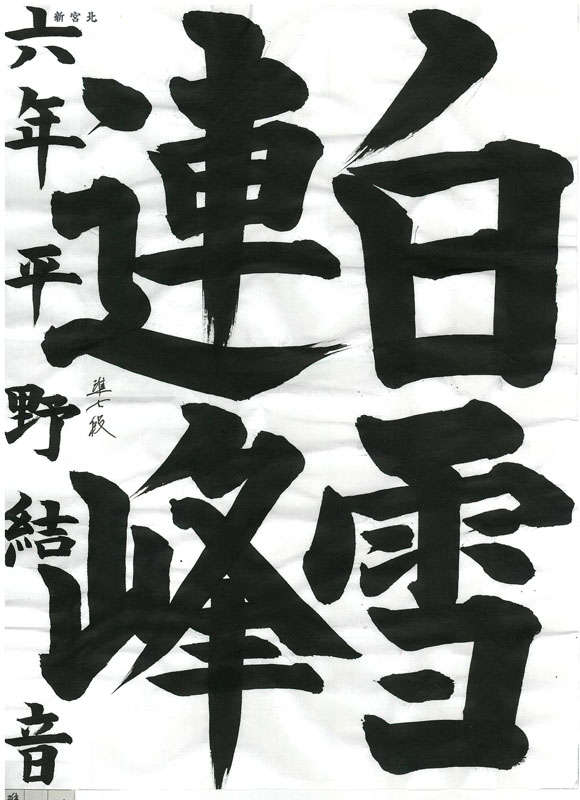 白雪
連峰
準七段
六年平野結音
北宮新